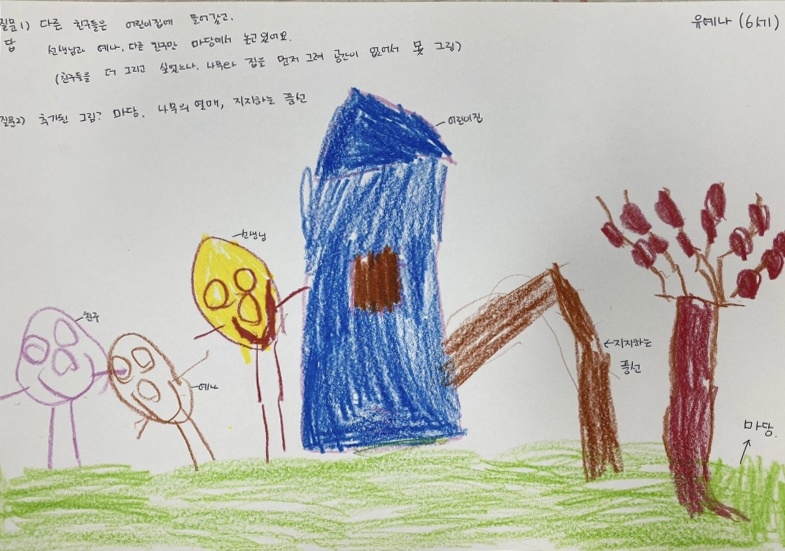 질문1) 다른 친구들은 어린이집에 들어갔고.
답 선생님과 예나. 다른 친구만 마당에서 놀고있어요.
(친구들을 더 그리고 싶었느나. 나무와 집을 먼저 그려 공간이 없어서 못 그림)
질문2) 추가된 그림? 마당. 나무의 열매, 지지하는 풍선
유예나 (6세)
어린이집
선생님
친구
예나
←지지하는
풍선
마당.